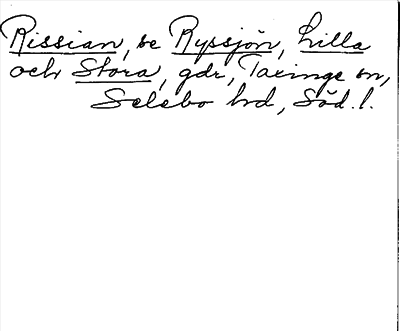 Rissian, se Ryssjön, Lilla
och Stora, gdr, Taxinge sn,
Selebo hd, Söd. l.